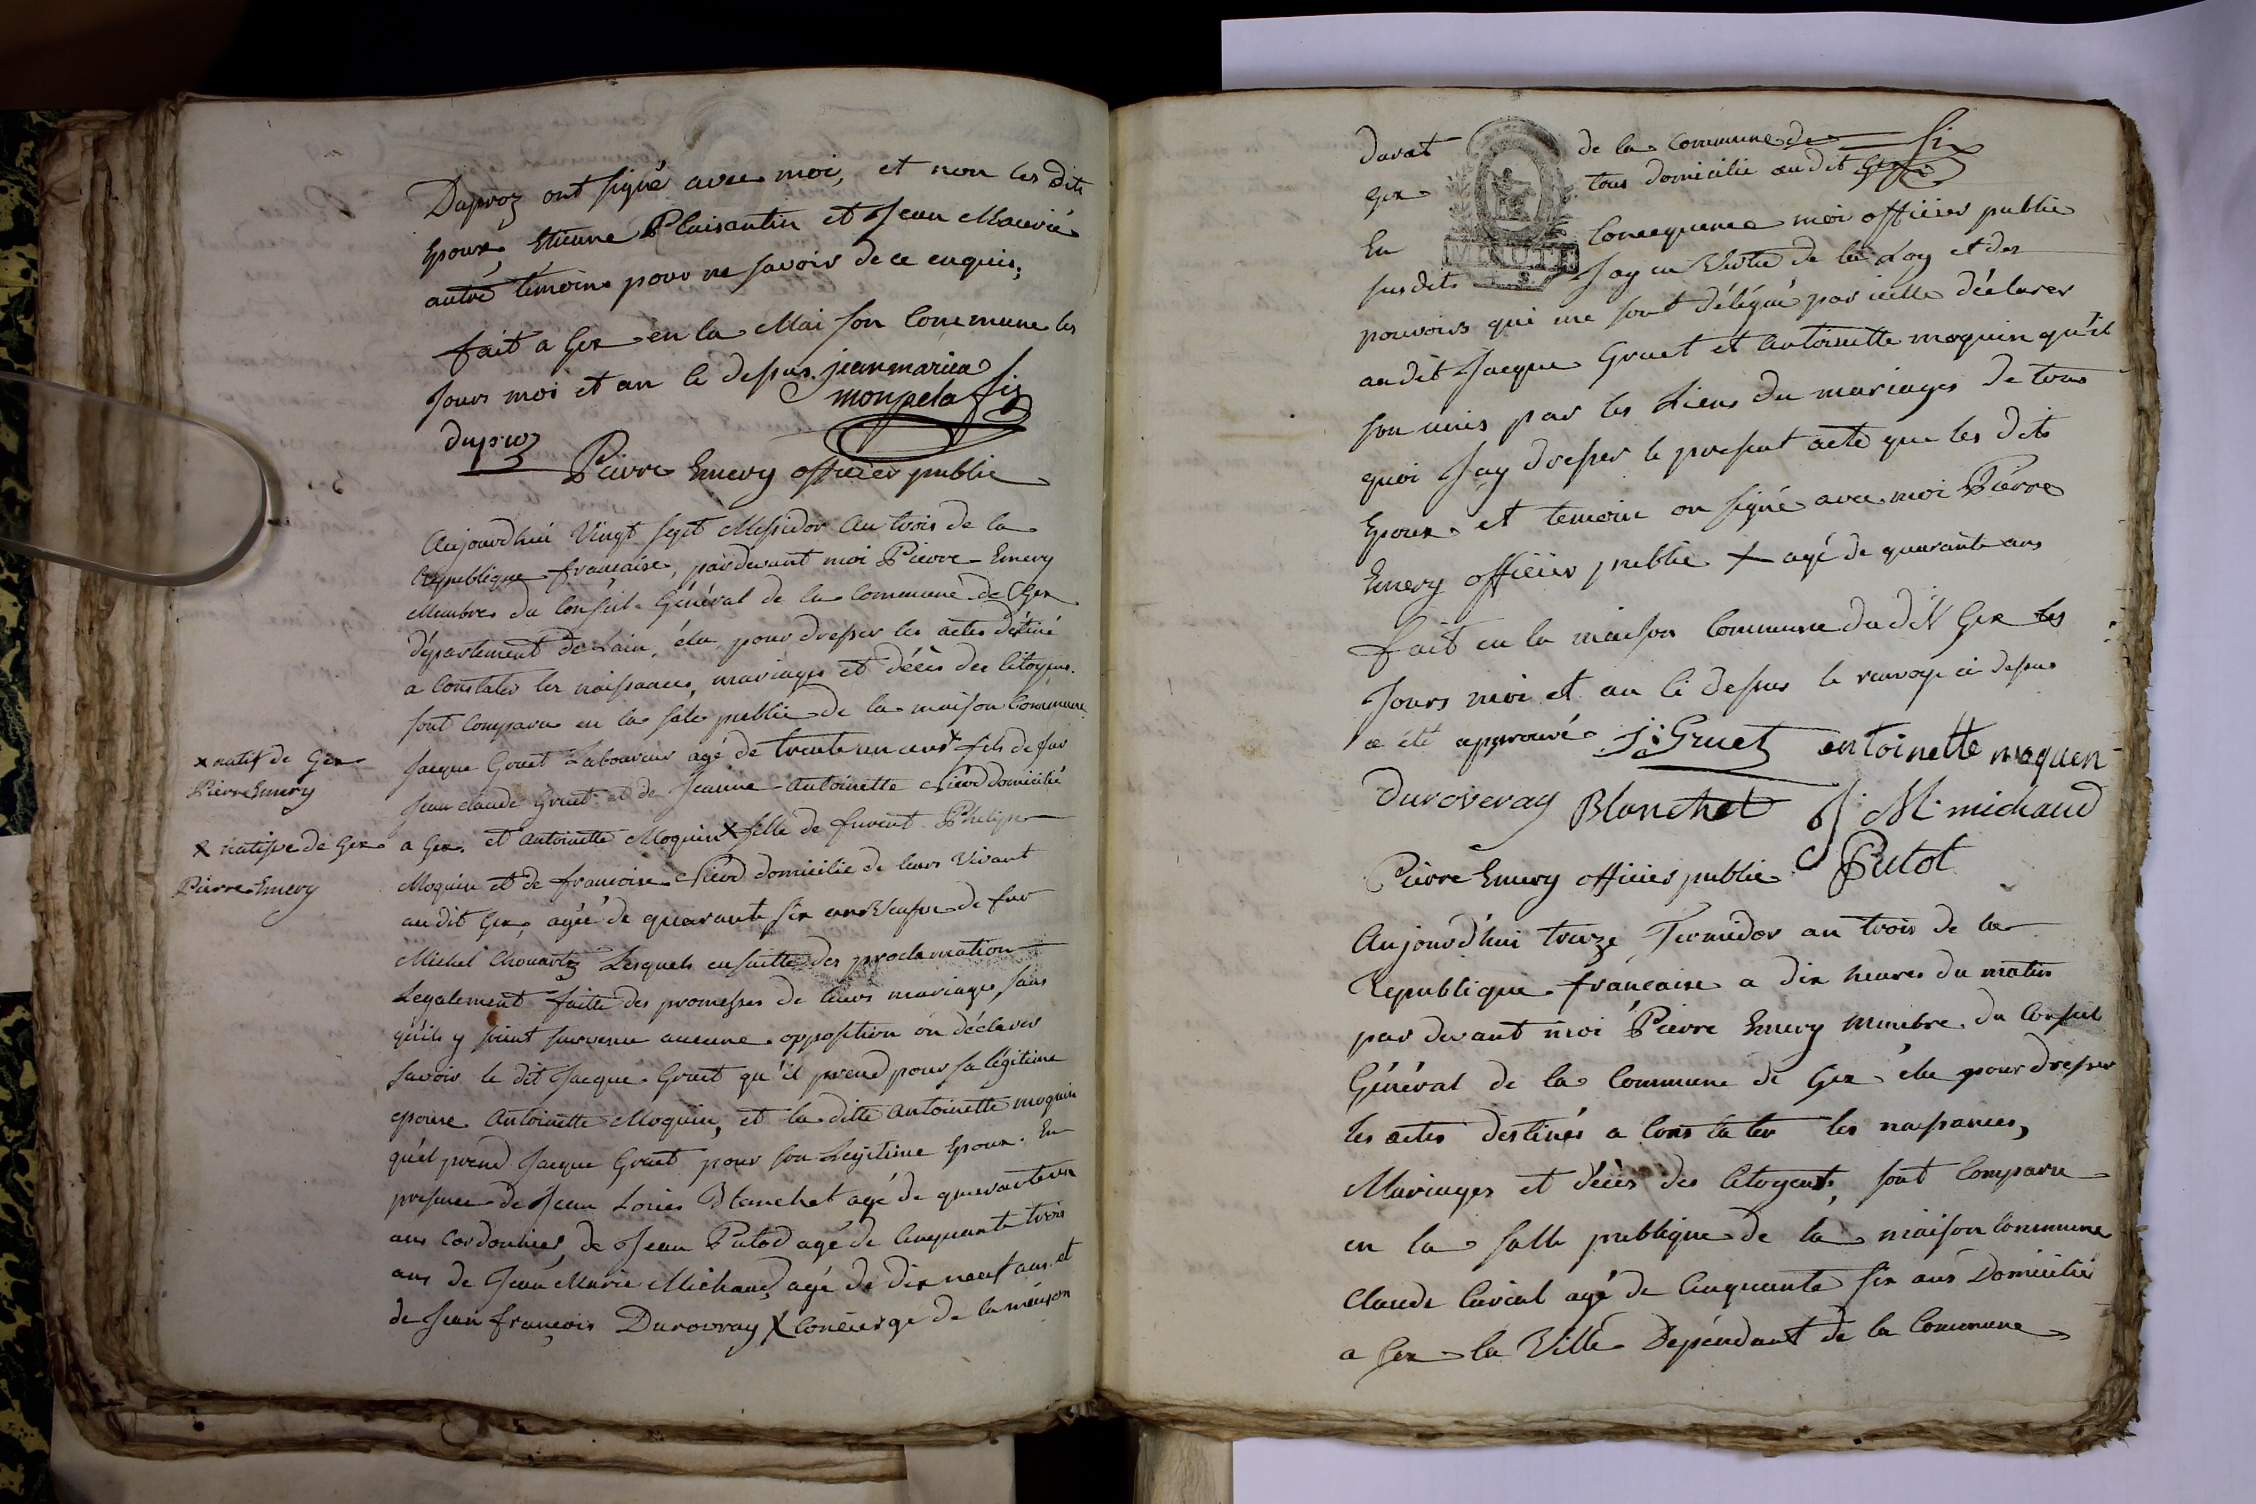 Duproz ont signé avec moi, et non les dits
Epoux, Etienne Plaisantin et Jean Mauris
autre temoins pour ne savoir de ce enquis;
fait a Gex en la Maison Commune les
Jours moi et an ci dessus. jean marie
monpela fis
duproz
Pierre Emery officier public
Aujourdhui Vingt sept Messidor An trois de la
République francaise, pardevant moi Pierre Emery
Membre du Conseil Général de la Commune de Gex
département de Lain, élu pour dresser les actes destiné
a Constater les naissances, mariages et décès des Citoyens.
sont Comparu en la sale public de la maison Commune
Jacque Gruet Laboureur agé de trente un ans x fils de feu
Jean claude Gruet et de Jeanne Antoinette domicilié
a Gex. et Antoinette Moquin x fille de furent Philipe
Moquin et de francoise domicilié de leurs Vivant
au dit Gex, agée de quarante six ans Veufve de feu
Michel Chouartz Lesquels ensuitte des proclamation
Legalement faitte des promesses de leurs mariages, sans
qu'ils y soient survenu aucune opposition on déclarer
savoir le dit Jacque Gruet qu'il prend pour sa légitime
epouse Antoinette Moquin, et la ditte Antoinette moquin
qu'el prend Jacque Gruet pour son Legitime Epoux. En
presence de Jean Louis Blanchet agé de quarante un
ans Cordonnier, de Jean Putod agé de Cinquante trois
ans de Jean Marie Michaud, agé de dix neuf ans et
de Jean françois Durovray X Concierge de la maison
x natif de Gex
Pierre Emery
x natisve de Gex
Pierre Emery
darat de la Commune de
Gex tous domicilie audit Gex
En Consequence moi officier public
susdit Jay en Vertu de la Loy et des
pouvoirs qui me sont délégué par icelle déclarer
audit Jacque Gruet et Antoinette moquin qu'il
son unis par les Liens du mariages De tous
quoi Jay dresser le present acte que les dits
Epoux et temoin on signé avec moi Pierre
Emery officier public X agé de quarante ans
fait en la maison Commune du dit Gex les
Jours moi et an ci dessus le renvoye ci dessus
a été approuvé J: Gruet antoinette moquen
duroveray Blanchet J: M: michaud
Pierre Emery officier public Putot
Aujourd'hui treize Termidor an trois de la
Republique francaise a dix heures du matin
par devant moi Pierre Emery membre du Conseil
Général de la Commune de Gex élu pour dresser
les actes destinés a Constater les naissances,
Mariages et décès des Citoyens, sont Comparu
en la salle publique de la maison Commune
Claude agé de Cinquante six ans Domicilié
a Gex la Ville Dépendant de la Commune